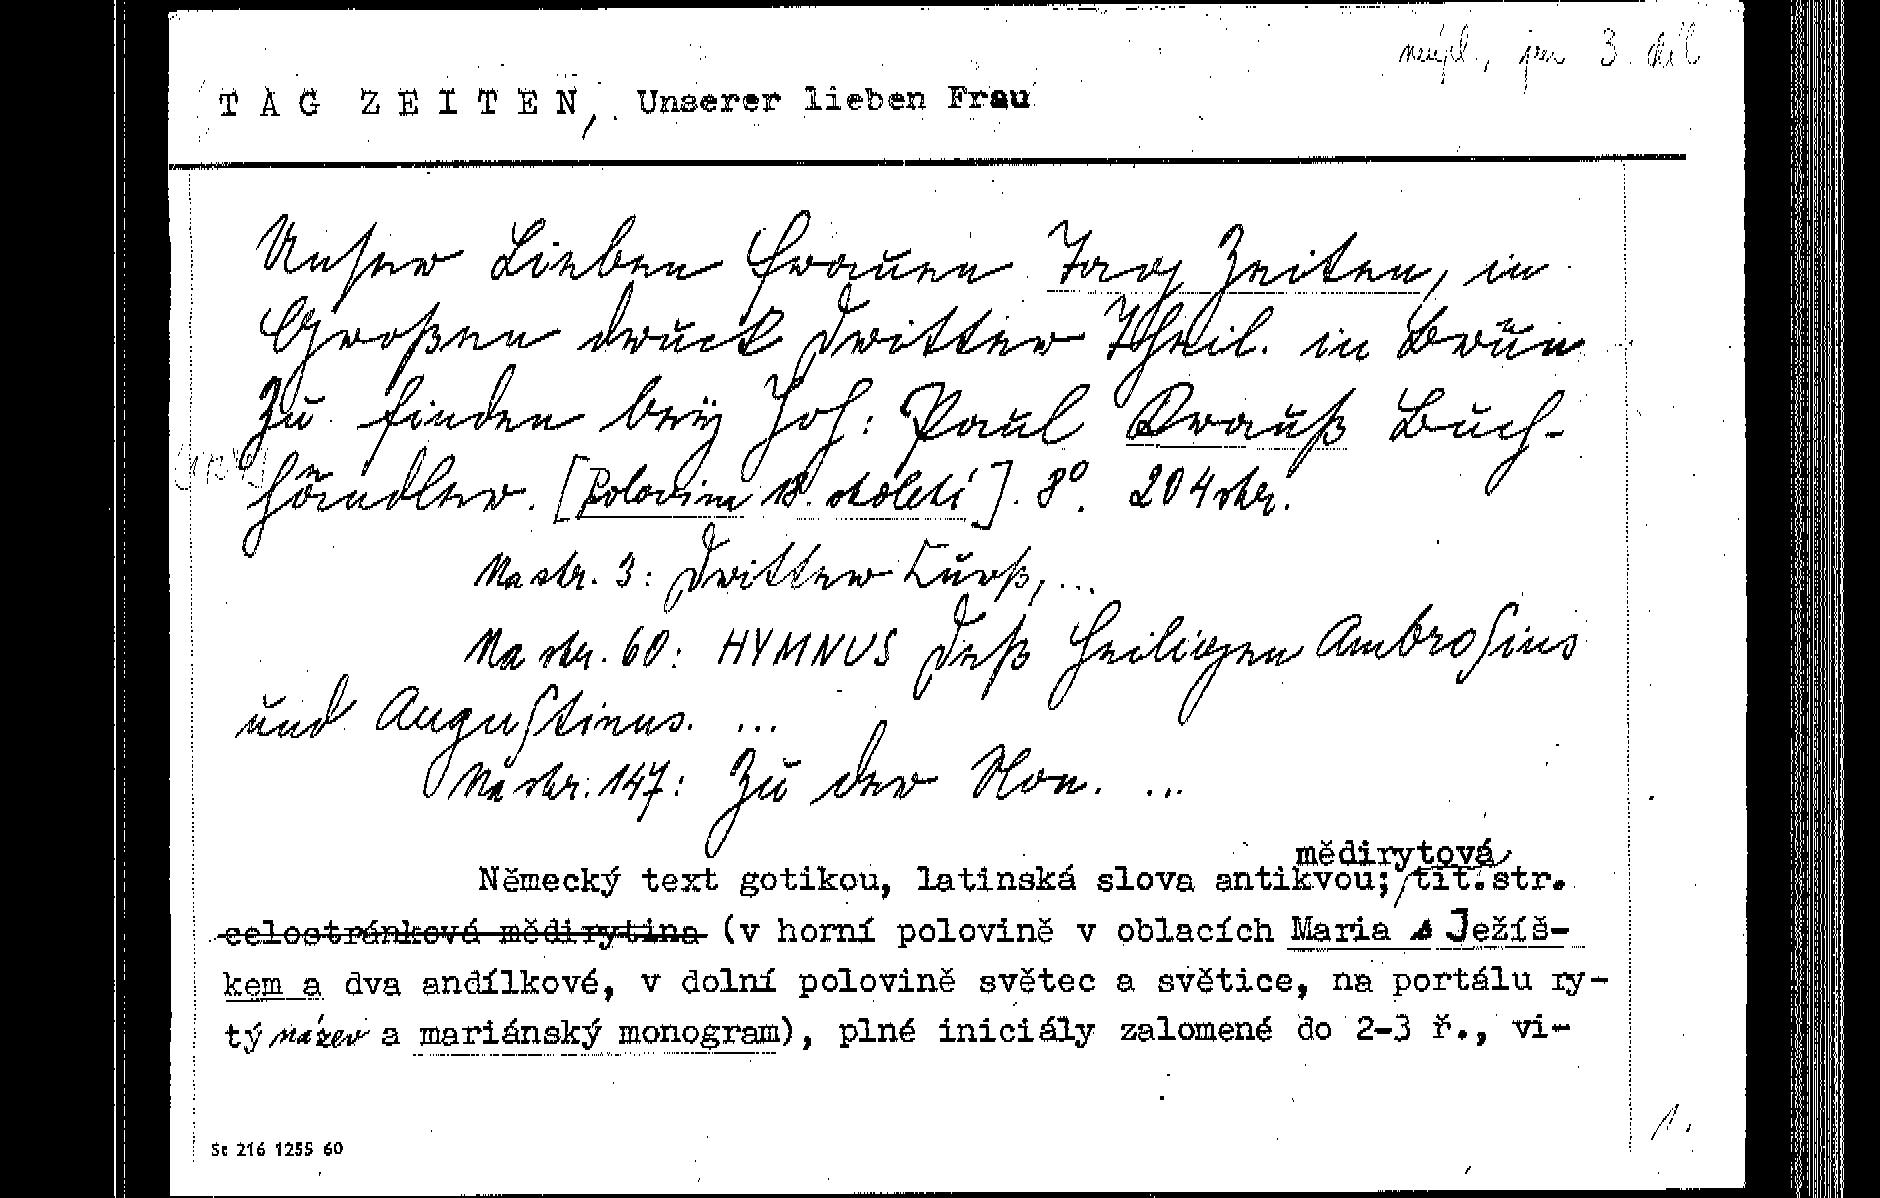 neúpl., jen 3. díl
TAG ZEITEN, Unserer lieben Frau
Unser Lieben Frauen Tag Zeiten, in
Großen druck Dritter Theil. in Brün
Zu finden beÿ Joh: Paul Krauß Buch-
händler. [Polovina 18. století]. 8°. 204 str.
Na str. 3: Dritter Curß, ...
Na str. 60: HYMNUS Deß Heiligen Ambrosius
und Augustinus. ...
Na str. 147: Zu der Non. ...
mědirytová
Německý text gotikou, latinská slova antikvou; tit. str.
celostránková mědirytina (v horní polovině v oblacích Maria s Ježíš-
kem a dva andílkové, v dolní polovině světec a světice, na portálu ry-
tý název a mariánský monogram), plné iniciály zalomené do 2-3 ř., vi-
1.
Sc 216 1255 60